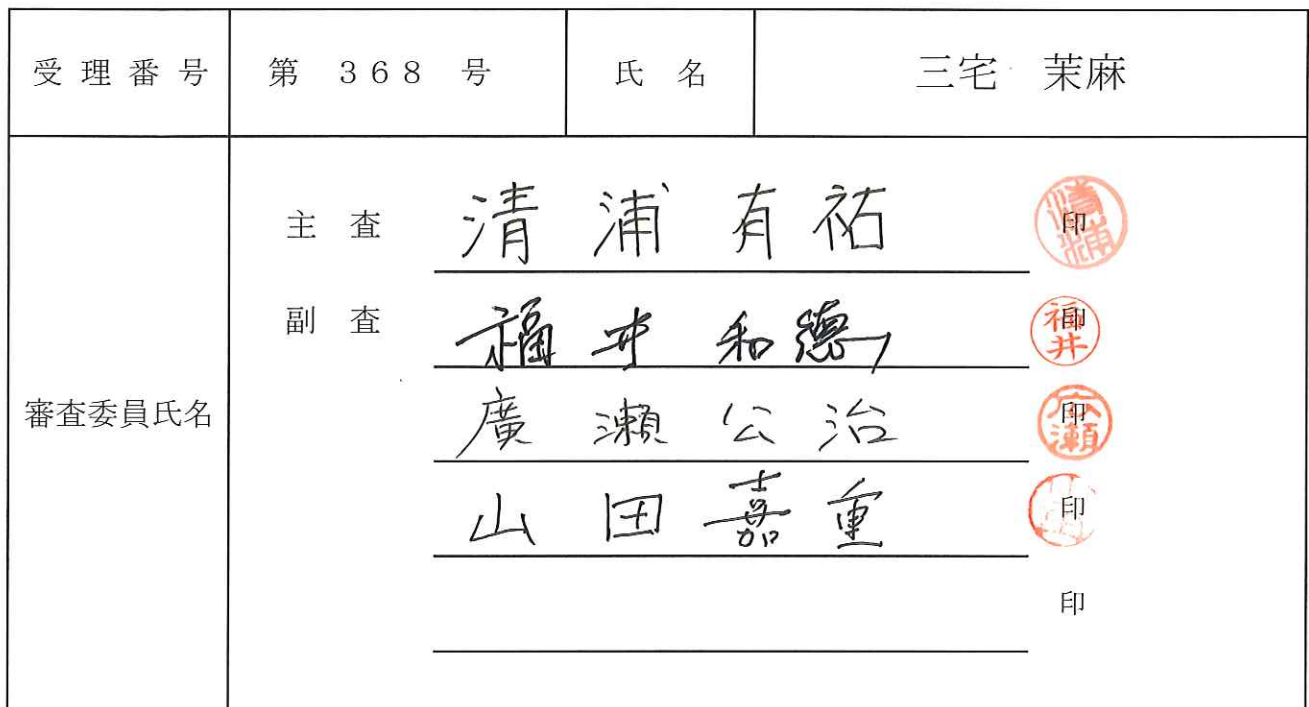 受理番号 第 368 号 氏名 三宅 茉麻
審査委員氏名
主査 清浦有祐 印
副査 福井和德 印
廣瀬公治 印
山田嘉重 印
印